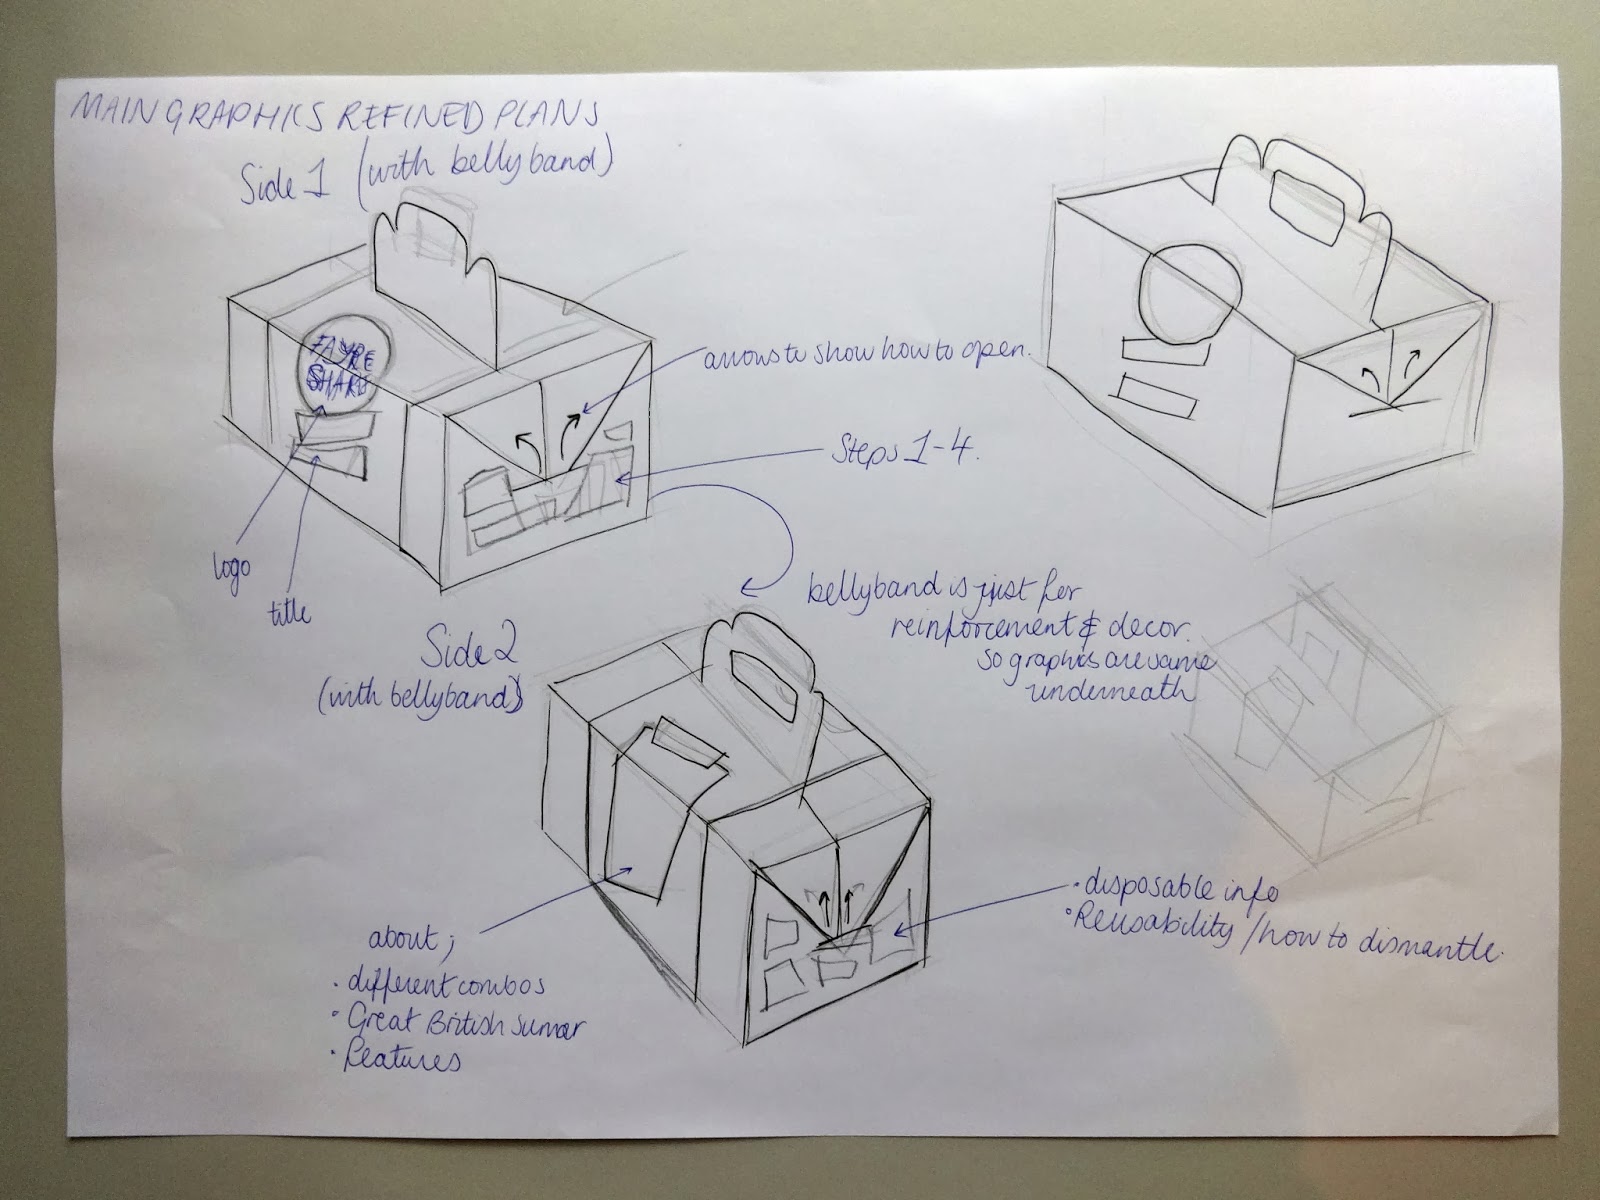 MAIN GRAPHICS REFINED PLANS
Side 1 (with bellyband)
FAYRE
SHARE
arrows to show how to open.
Steps 1-4.
logo
title
bellyband is just for
reinforcement & decor.
so graphics are same
underneath
Side 2
(with bellyband)
about;
· different combos
· Great British Sumer
· features
· disposable info
· Reusability / how to dismantle.